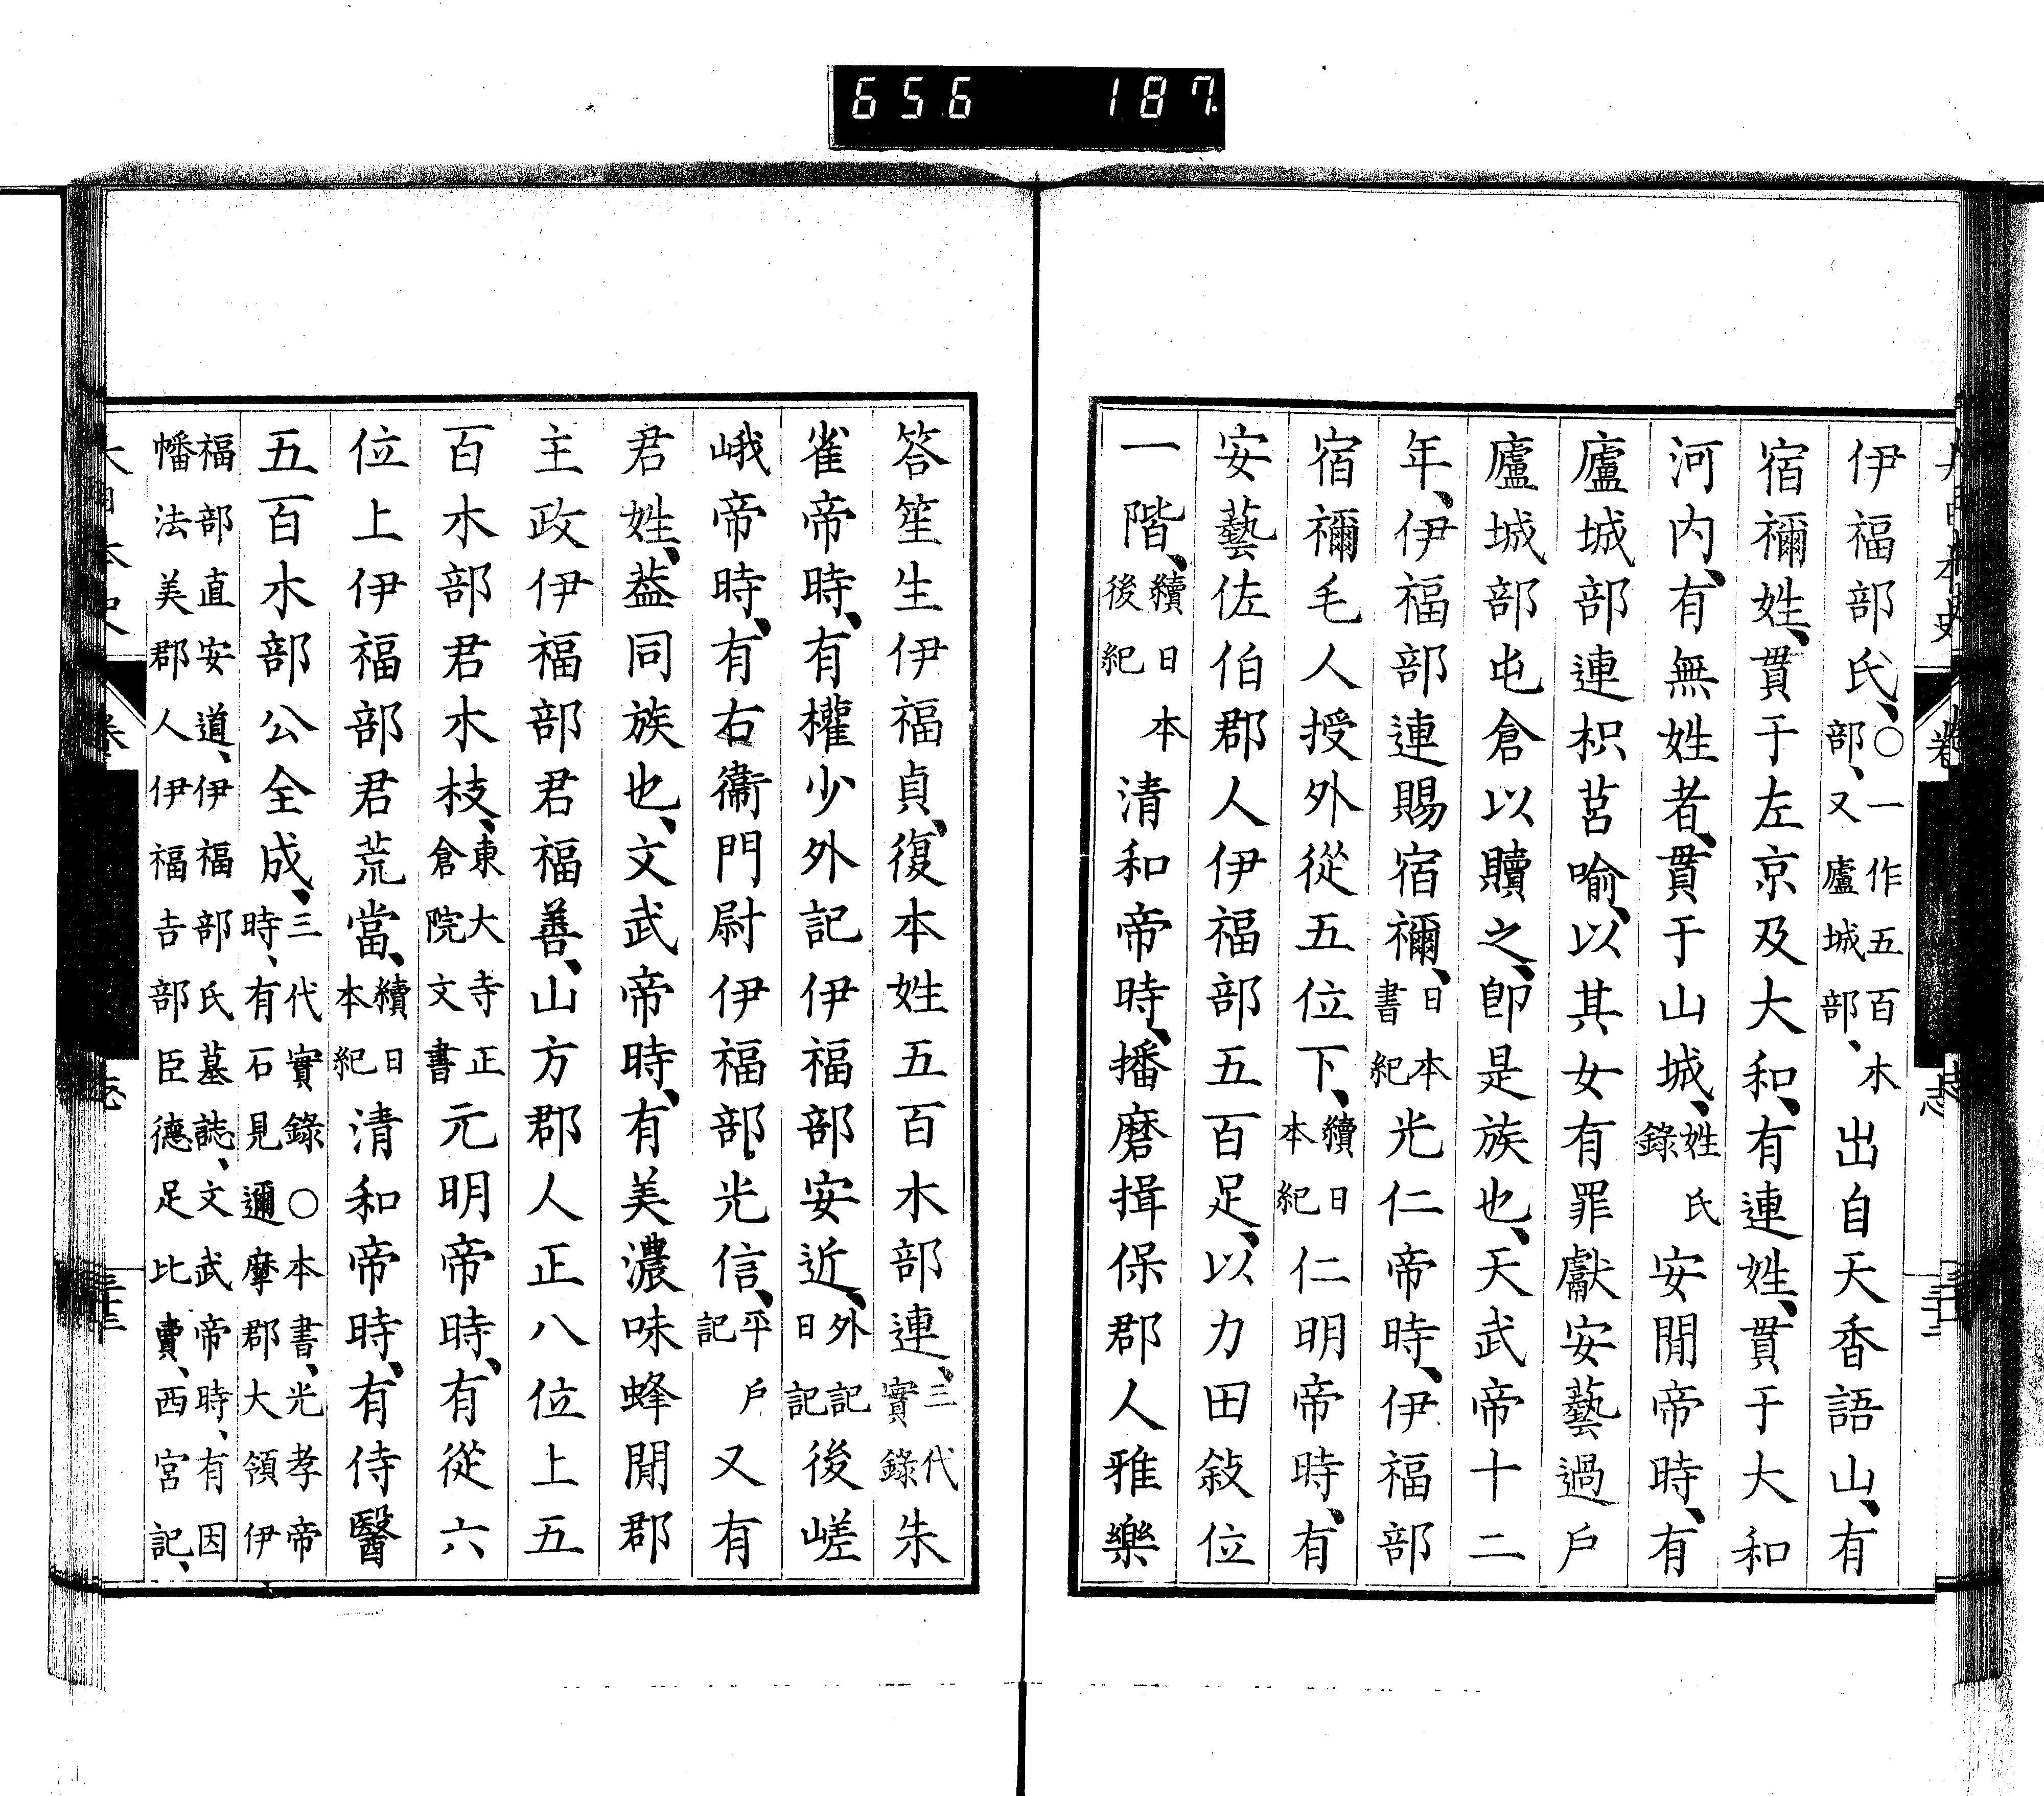 656 187
伊福部氏、○一作五百木部、又廬城部、出自天香語山、有
宿禰姓、貫于左京及大和、有連姓、貫于大和
河内、有無姓者、貫于山城、姓氏錄安閒帝時、有
廬城部連枳莒喻、以其女有罪獻安藝過戶
廬城部屯倉以贖之、卽是族也、天武帝十二
年、伊福部連賜宿禰、日本書紀光仁帝時、伊福部
宿禰毛人授外從五位下、續日本紀仁明帝時、有
安藝佐伯郡人伊福部五百足、以力田敍位
一階、續日本後紀清和帝時、播磨揖保郡人雅樂
答笙生伊福貞、復本姓五百木部連、三代實錄朱
雀帝時、有權少外記伊福部安近、外記日記後嵯
峨帝時、有右衞門尉伊福部光信、平戶記又有
君姓、蓋同族也、文武帝時、有美濃味蜂閒郡
主政伊福部君福善、山方郡人正八位上五
百木部君木枝、東大寺正倉院文書元明帝時、有從六
位上伊福部君荒當、續日本紀清和帝時、有侍醫
五百木部公全成、三代實錄○本書、光孝帝時、有石見邇摩郡大領伊
福部直安道、伊福部氏墓誌、文武帝時、有因幡法美郡人伊福吉部臣德足比賣、西宮記、